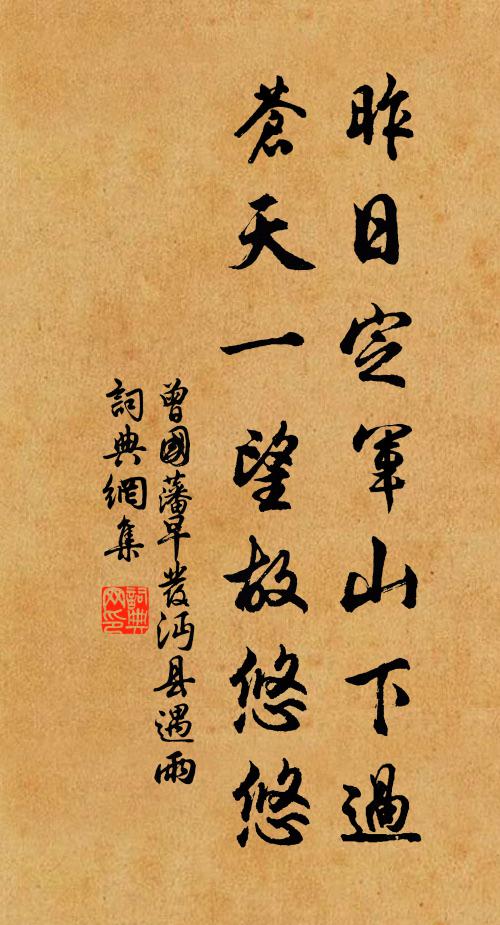 昨日定軍山下過
蒼天一望故悠悠
曾國藩早發沔县遇雨
詞典網集
詞典
网印